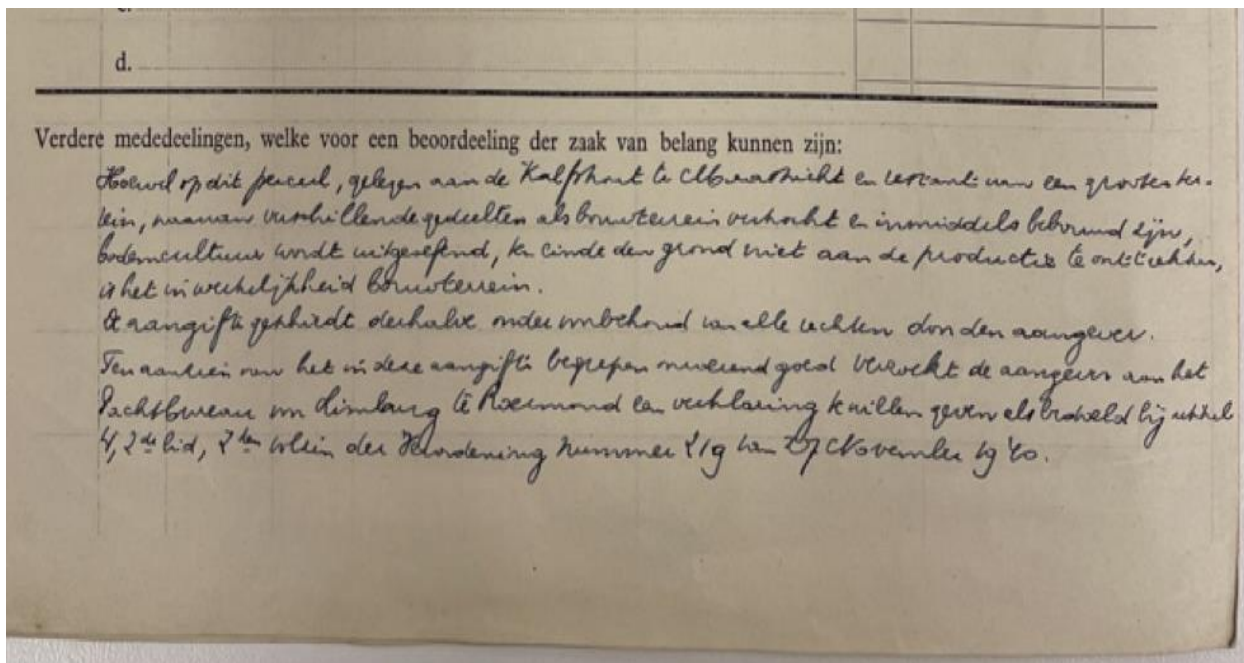 d.
Verdere mededeelingen, welke voor een beoordeeling der zaak van belang kunnen zijn:
Hoewel op dit perceel, gelegen aan de Kalfstraat te Maastricht en restant van een grooter ter-
rein, waarvan verschillende gedeelten als bouwterrein verkocht en inmiddels bebouwd zijn,
bodemcultuur wordt uitgeoefend, ten einde den grond niet aan de productie te onttrekken,
is het in werkelijkheid bouwterrein.
De aangifte geschiedt derhalve onder voorbehoud van alle rechten van den aangever.
Ten aanzien van het in deze aangifte begrepen onroerend goed verzoekt de aangever aan het
Pachtbureau van Limburg te Roermond een verklaring te willen geven als bedoeld bij artikel
4, 2de lid, 2den volzin der Verordening nummer 219 van 27 November 1940.